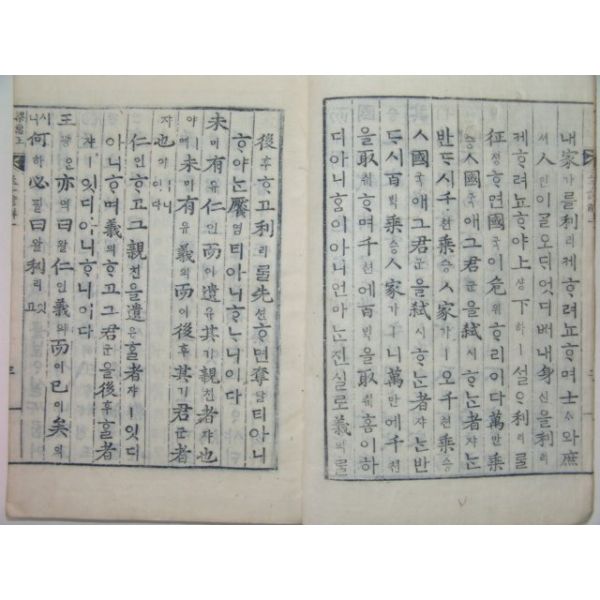 내家가를利리케ᄒᆞ려뇨ᄒᆞ며士ᄉᆞ와庶
셔人인이ᄀᆞᆯ오ᄃᆡ엇디ᄡᅥ내身신을利리
케ᄒᆞ려뇨ᄒᆞ야上샹下하ㅣ설으利리ᄅᆞᆯ
征졍ᄒᆞ면國국이危위ᄒᆞ리이다萬만乘
승ㅅ國국애그君군을弑시ᄒᆞᄂᆞᆫ者쟈ᄂᆞᆫ
반ᄃᆞ시千쳔乘승ㅅ家가ㅣ오千쳔乘승
ㅅ國국애그君군을弑시ᄒᆞᄂᆞᆫ者쟈ᄂᆞᆫ반
ᄃᆞ시百ᄇᆡᆨ乘승ㅅ家가ㅣ니萬만에千쳔
을取ᄎᆔᄒᆞ며千쳔에百ᄇᆡᆨ을取ᄎᆔ홈이하
디아니ᄒᆞᆫ이아니언마ᄂᆞᆫ진실로義의ᄅᆞᆯ
後후ᄒᆞ고利리ᄅᆞᆯ先션ᄒᆞ면奪탈티아니
ᄒᆞ야ᄂᆞᆫ饜염티아니ᄒᆞᄂᆞ니이다
未미有유仁인而이遺유其기親친者쟈也
야ㅣ며未미有유義의而이後후其기君군者
쟈也야ㅣ니이다
仁인ᄒᆞ고그親친을遺유ᄒᆞᆯ者쟈ㅣ잇디
아니ᄒᆞ며義의ᄒᆞ고그君군을後후ᄒᆞᆯ者
쟈ㅣ잇디아니ᄒᆞ니이다
王왕은亦역曰왈仁인義의而이已이矣의
니시何하必필曰왈利리잇고
梁惠王